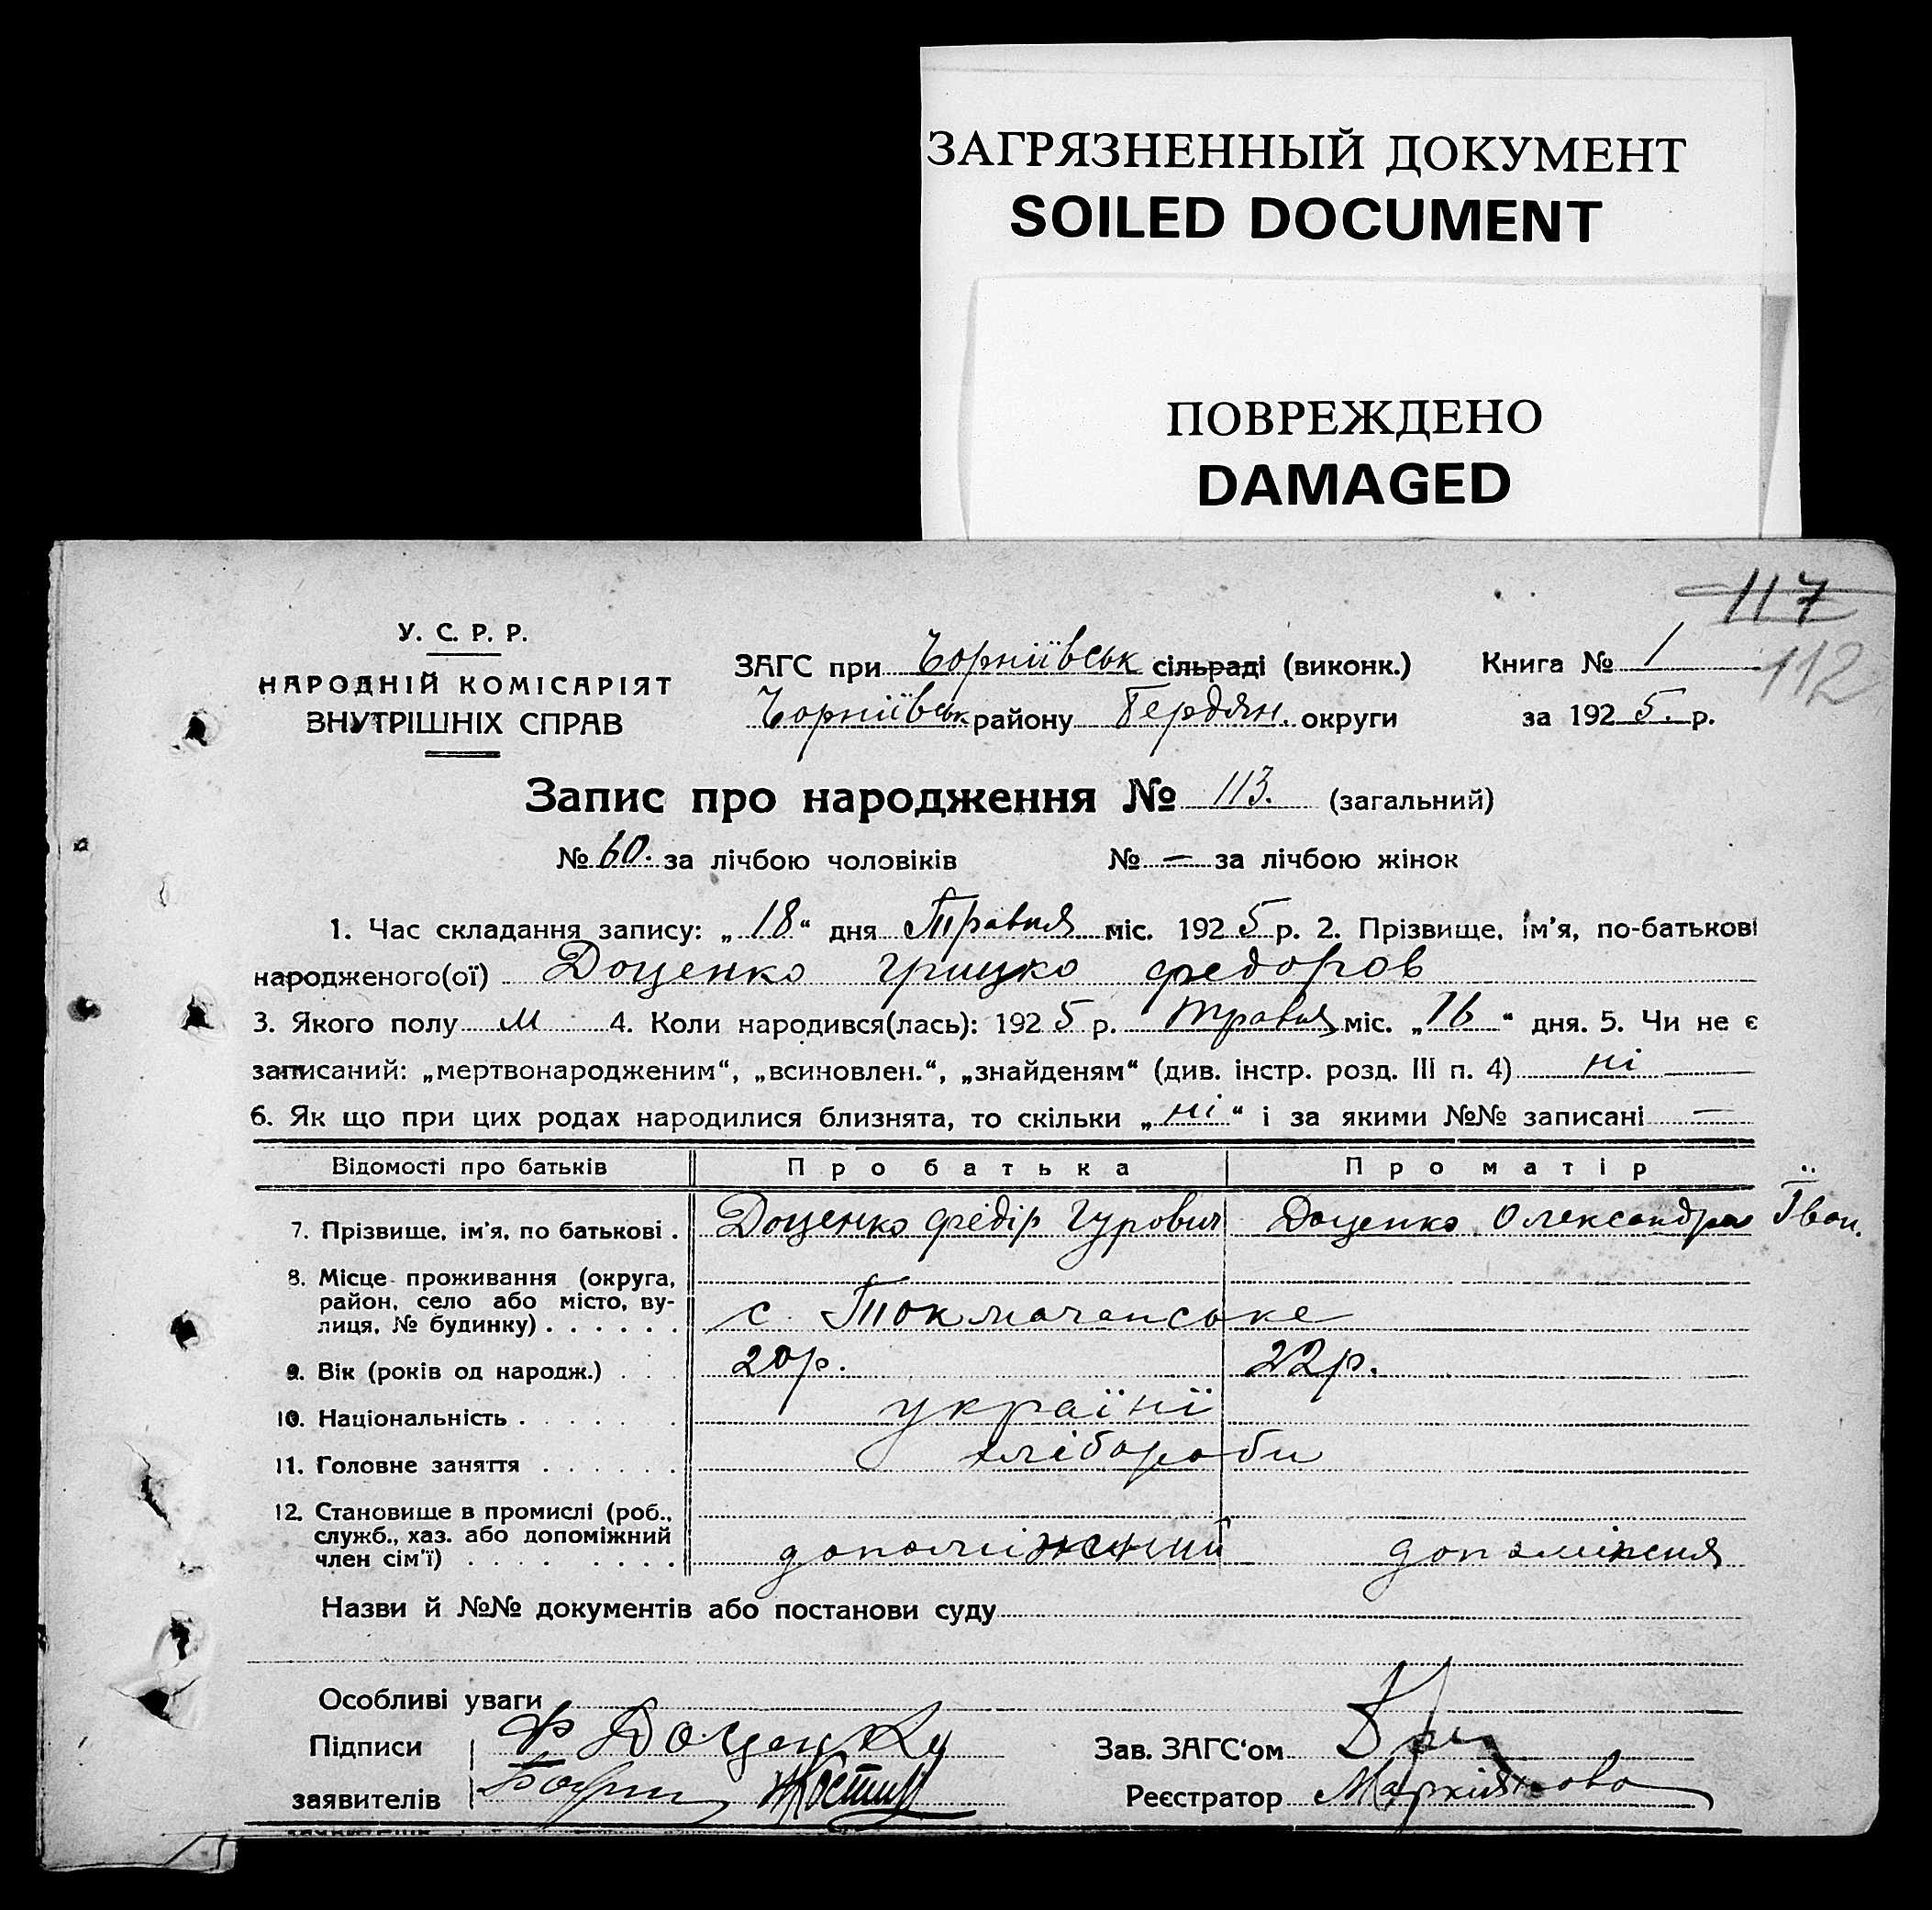 ЗАГРЯЗНЕННЫЙ ДОКУМЕНТ
SOILED DOCUMENT
ПОВРЕЖДЕНО
DAMAGED
117
112
У. С. Р. Р.
НАРОДНІЙ КОМІСАРІЯТ
ВНУТРІШНІХ СПРАВ
ЗАГС при Чорніївськ сільраді (виконк.) Книга № 1
Чорніївськ. району Бердян. округи за 1925. р.
Запис про народження № 113. (загальний)
№ 60. за лічбою чоловіків № — за лічбою жінок
1. Час складання запису: „18“ дня Травня міс. 1925 р. 2. Прізвище, ім'я, по-батькові
народженого(ої) Доценко Грицко Федоров
3. Якого полу м 4. Коли народився(лась): 1925 р. травня міс. „16“ дня. 5. Чи не є
записаний: „мертвонародженим“, „всиновлен.“, „знайденям“ (див. інстр. розд. III п. 4) ні
6. Як що при цих родах народилися близнята, то скільки „ні“ і за якими №№ записані —
Відомості про батьків Про батька Про матір
7. Прізвище, ім'я, по батькові . Доценко Федір Гурович Доценко Олександра Іван.
8. Місце проживання (округа,
район, село або місто, ву-
лиця, № будинку) . . . . . . с. Токмачанське
9. Вік (років од народж.) . . . 20 р. 22 р.
10. Національність . . . . . . україні
11. Головне заняття . . . . . . хлібороби
12. Становище в промислі (роб.,
служб., хаз. або допоміжний
член сім'ї) . . . . . . . . . допоміжний допоміжня
Назви й №№ документів або постанови суду
Особливі уваги
Підписи Ф Доценку Зав. ЗАГС'ом
заявителів Реєстратор Маркіянова